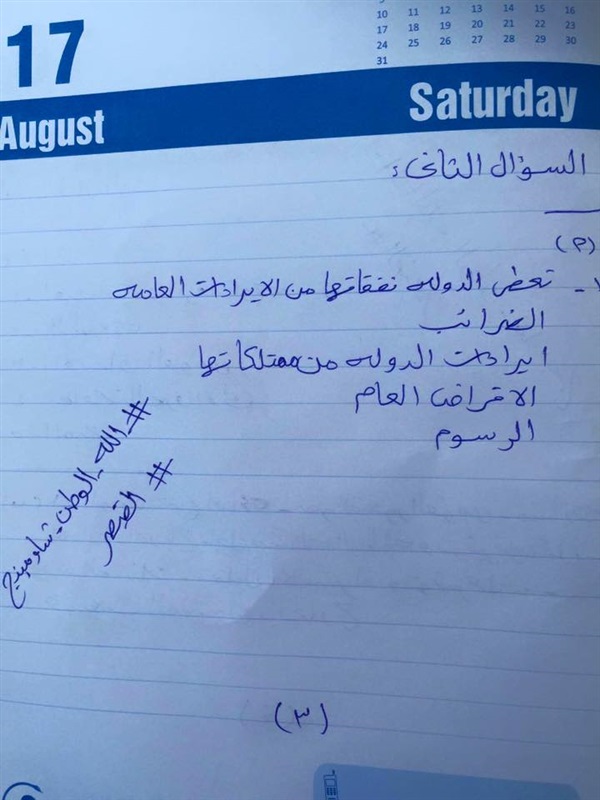 17
10 11 12 13 14 15 16
17 18 19 20 21 22 23
24 25 26 27 28 29 30
31
August
Saturday
السؤال الثانى:
(م)
١- تعطى الدوله نفقاتها من الايرادات العامه
الضرائب
ايرادات الدوله من ممتلكاتها
الاقراض العام
الرسوم
#الله_الوطن_شاومينج
# القيصر
(٣)